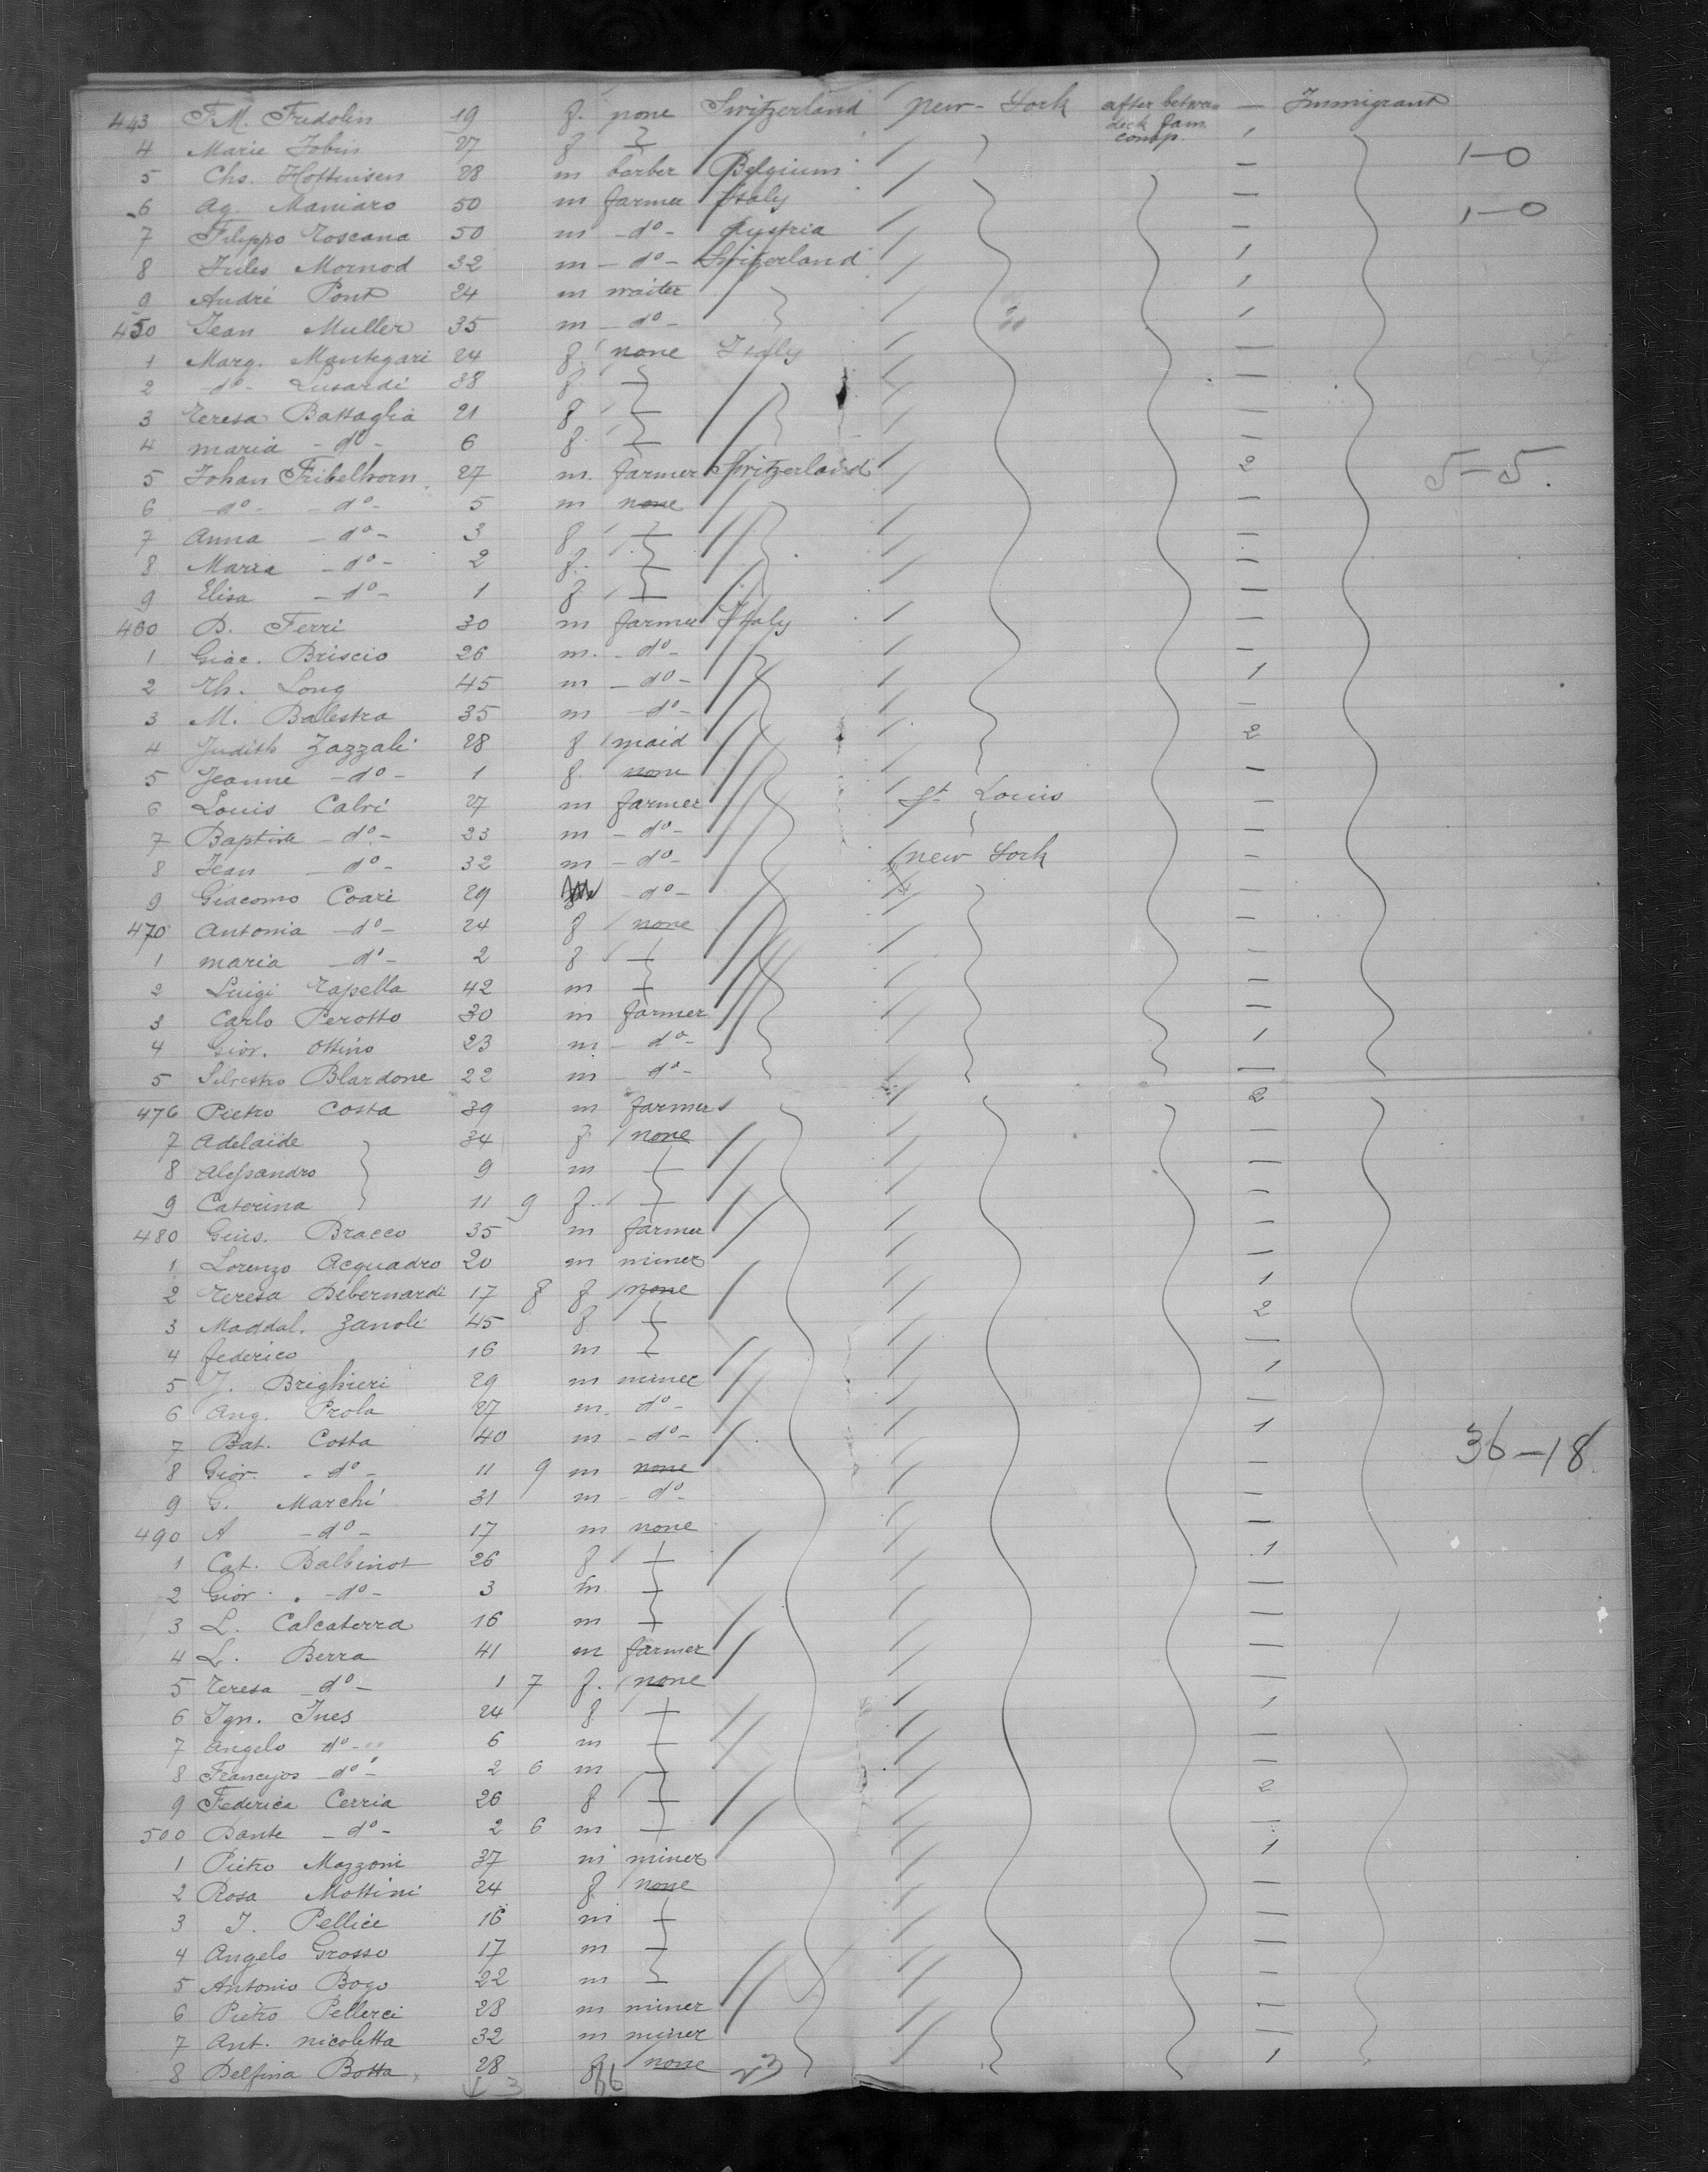 443 F.M. Fredolin 19 f. none Switzerland New-York after betwen deck fam. comp. — Immigrant
4 Marie Jobin 27 f 1
5 Chs. Hoffinisen 28 m barber Belgium — 1-0
6 Ag. Maniaro 50 m farmer Italy — 1-0
7 Filippo Toscana 50 m -do- Austria —
8 Jules Mornod 32 m -do- Switzerland 1
9 André Pont 24 m waiter 1
450 Jean Muller 35 m -do- 1
1 Marg. Mantegari 24 f. none Italy —
2 -do- Lusardi 38 f. —
3 Teresa Battaglia 21 f —
4 maria -do- 6 f. —
5 Johan Fribelhorn 27 m. farmer Switzerland 2 5-5.
6 -do- -do- 5 m none —
7 Anna -do- 3 f —
8 Maria -do- 2 f. —
9 Elisa -do- 1 f —
460 B. Ferri 30 m farmer Italy —
1 Giac. Briscio 26 m. -do- —
2 Th. Long 45 m -do- 1
3 M. Balestra 35 m -do- —
4 Judith Zazzali 28 f maid 2
5 Jeanne -do- 1 f. none —
6 Louis Calvi 27 m farmer St. Louis —
7 Baptiste -do- 23 m -do- —
8 Jean -do- 32 m -do- New York —
9 Giacomo Coari 29 -do- —
470 Antonia -do- 24 f none —
1 maria -do- 2 f —
2 Luigi Tapella 42 m —
3 Carlo Perotto 30 m farmer —
4 Giov. Ottino 23 m -do- 1
5 Silvestro Blardone 22 m do- —
476 Pietro Costa 39 m farmer 2
7 Adelaïde 34 f. none —
8 Alessandro 9 m —
9 Caterina 11 9 f. —
480 Gius. Bracco 35 m farmer —
1 Lorenzo Acquadro 20 m miner —
2 Teresa Debernardi 17 8 f none 1
3 Maddal. Zanoli 45 f 2
4 federico 16 m —
5 J. Brighieri 29 m miner 1
6 Ang. Prola 27 m. do- —
7 Bat. Costa 40 m -do- 1
8 Giov. -do- 11 9 m none — 36-18
9 G. Marchi 31 m do- —
490 A -do- 17 m none —
1 Cat. Balbinot 26 f 1
2 Giov. -do- 3 m. —
3 L. Calcaterra 16 m —
4 L. Berra 41 m farmer —
5 Teresa -do- 1 7 f. none —
6 Ign. Ines 24 f 1
7 Angelo do- 6 m —
8 -do- 2 6 m —
9 Federica Cerria 26 f 2
500 Dante -do- 2 6 m —
1 Pietro Mazzoni 37 m miner 1
2 Rosa Mottini 24 f none —
3 J. Pellice 16 m —
4 Angelo Grosso 17 m —
5 Antonio Bogo 22 m —
6 Pietro Pellerei 28 m miner —
7 Ant. nicoletta 32 m miner —
8 Delfina Botta 28 f none 1
3 36 23